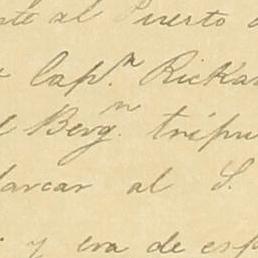 te al Puerto
Capⁿ. Rickar
Bergⁿ. tripu
arcar al S.
y era de esp